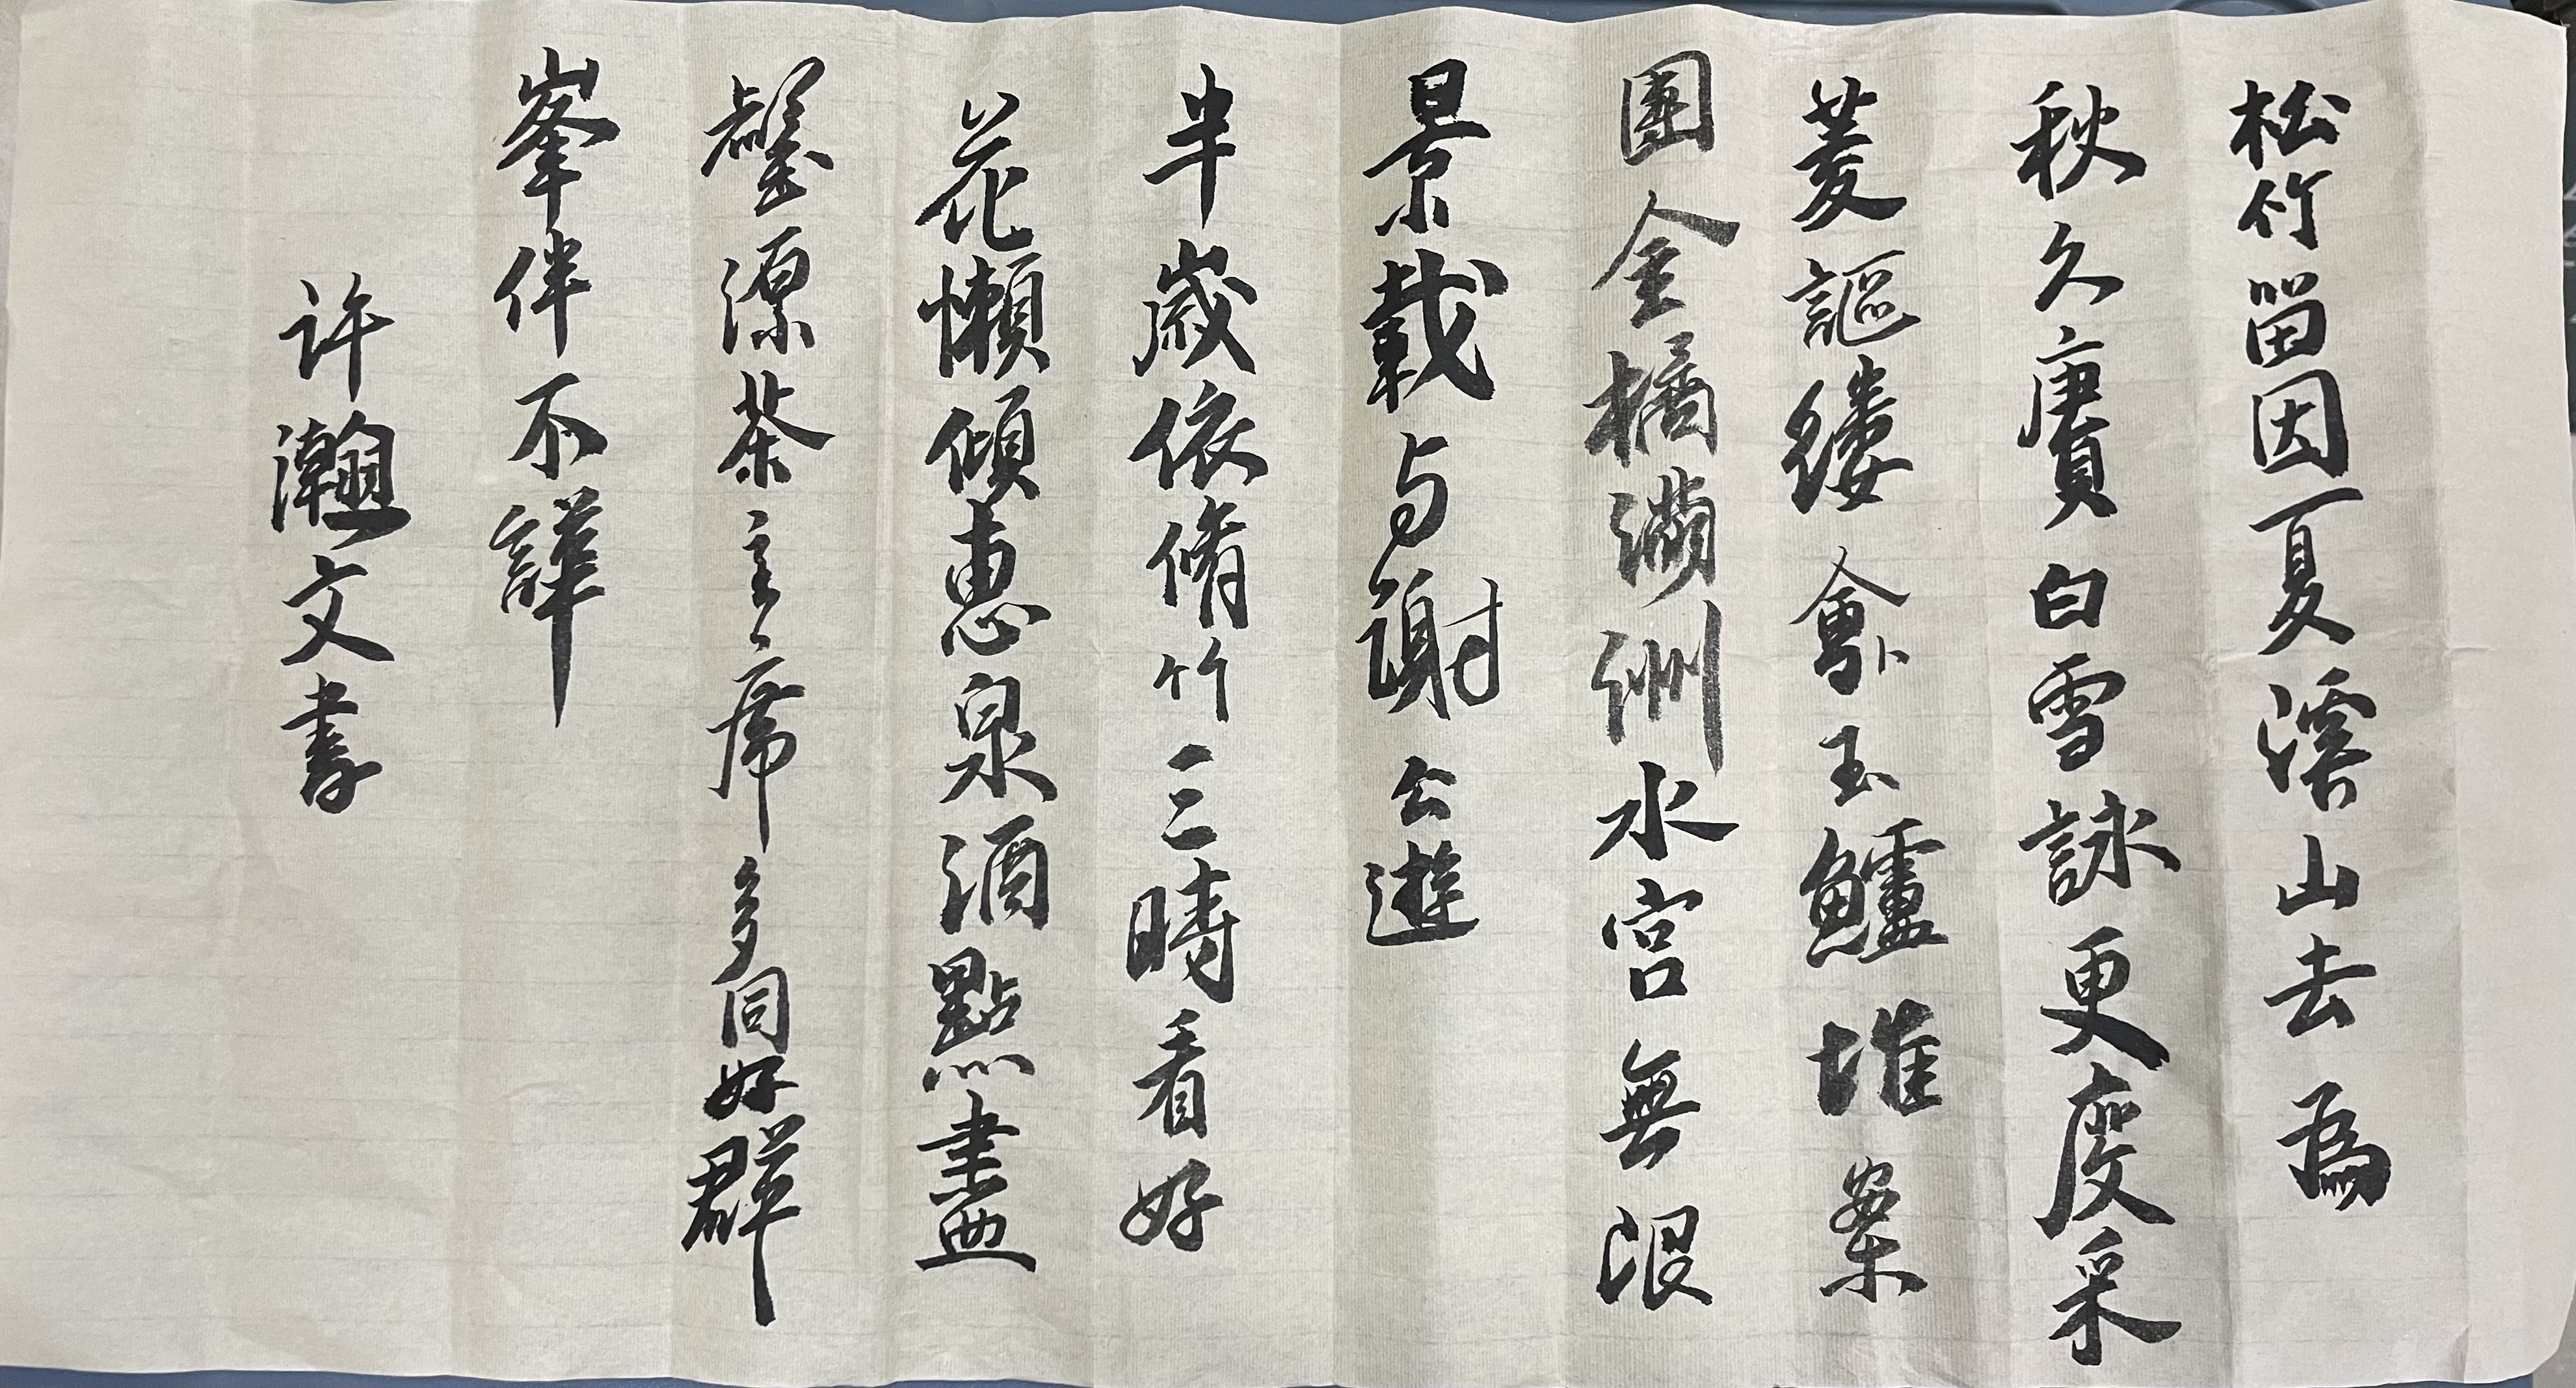 松竹留因夏溪山去為
秋久賡白雪詠更度采
菱謳縷鱠玉鱸堆案
團金橘滿洲水宮無限
景載与謝公遊
半歲依脩竹三時看好
花懶傾惠泉酒點盡
壑源茶主席多同好群
峯伴不譁
许瀚文書